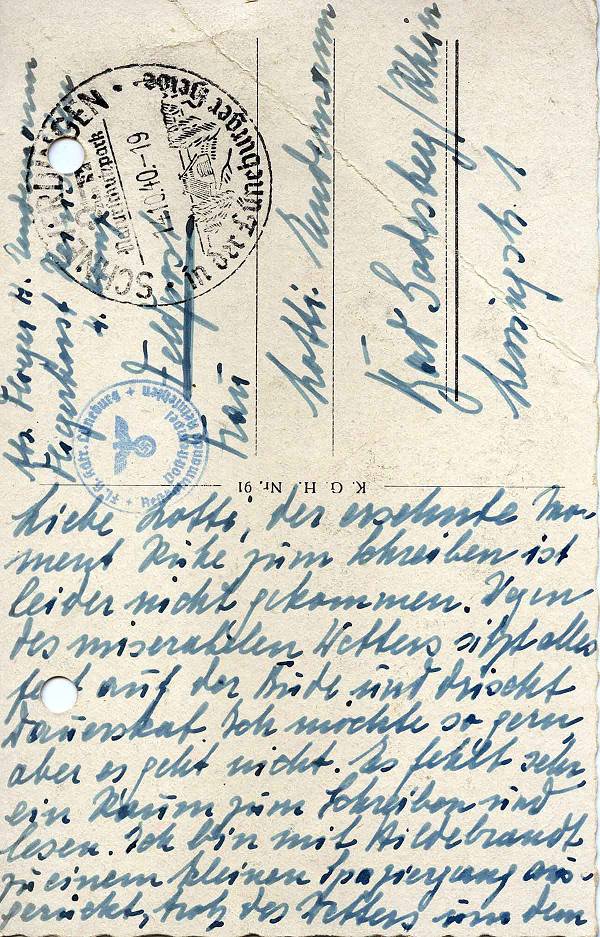 SCHNEVERDINGEN
Naturschutzpark
14.10.40.-19
in der Lüneburger Heide
Feldpost
Frau
Lotti
Bad Godesberg/Rhein
Lessingstr. 1
K. G. H. Nr. 91
Liebe Lotti, der ersehnte Mo-
ment Ruhe zum Schreiben ist
leider nicht gekommen. Wegen
des miserablen Wetters sitzt alles
fest auf der Bude und drischt
Dauerskat. Ich möchte so gern,
aber es geht nicht. Es fehlt sehr
ein Raum zum Schreiben und
lesen. Ich bin mit Hildebrandt
zu einem kleinen Spaziergang aus-
gerückt, trotz des Wetters um dem